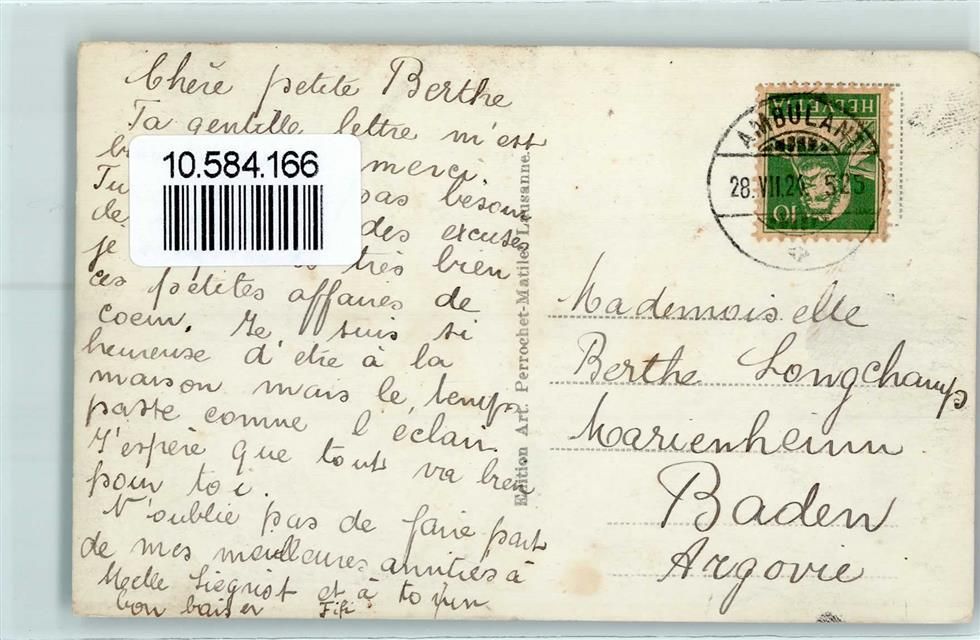 Chère petite Berthe
Ta gentille lettre m'est
merci.
Tu pas besoin
de des excuses
je très bien
ces petites affaires de
coeur. Je suis si
heureuse d'etre à la
maison mais le temps
passe comme l'éclair.
J'espère que tout va bien
pour toi.
N'oublie pas de faire part
de mes meilleures amitiés à
Melle Siegrist et à toi un
bon baiser Fifi
10.584.166
Edition Art. Perrochet-Matile, Lausanne.
HELVETIA
10
AMBULANT
28.VII.2 525
Mademoiselle
Berthe Longchamp
Marienheim
Baden
Argovie